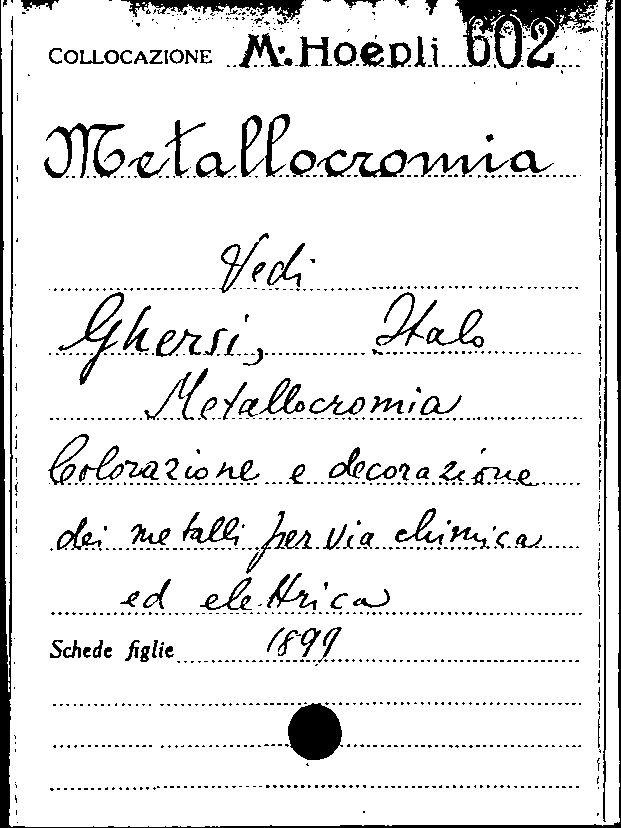 COLLOCAZIONE M. Hoepli 602
Metallocromia
Vedi
Ghersi, Italo
Metallocromia
Colorazione e decorazione
dei metalli per via chimica
ed elettrica
Schede figlie 1899